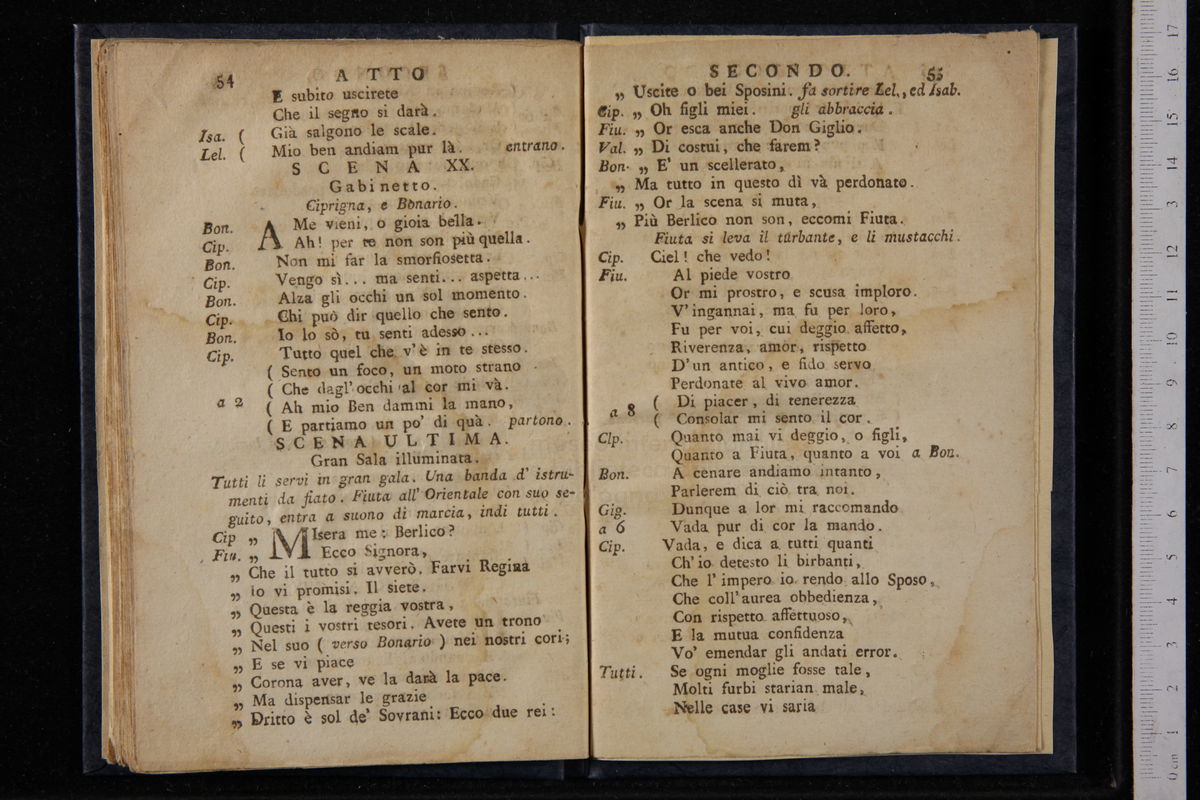 54 ATTO
E subito uscirete
Che il segno si darà.
Isa. ( Già salgono le scale.
Lel. ( Mio ben andiam pur là. entrano.
SCENA XX.
Gabinetto.
Ciprigna, e Bonario.
Bon. A Me vieni, o gioia bella.
Cip. Ah! per te non son più quella.
Bon. Non mi far la smorfiosetta.
Cip. Vengo sì... ma senti... aspetta...
Bon. Alza gli occhi un sol momento.
Cip. Chi può dir quello che sento.
Bon. Io lo sò, tu senti adesso...
Cip. Tutto quel che v'è in te stesso.
( Sento un foco, un moto strano
( Che dagl'occhi al cor mi và.
a 2 ( Ah mio Ben dammi la mano,
( E partiamo un po' di quà. partono.
SCENA ULTIMA.
Gran Sala illuminata.
Tutti li servi in gran gala. Una banda d'istru-
menti da fiato. Fiuta all'Orientale con suo se-
guito, entra a suono di marcia, indi tutti.
Cip „ MIsera me: Berlico?
Fiu. „ Ecco Signora,
„ Che il tutto si avverò. Farvi Regina
„ Io vi promisi. Il siete.
„ Questa è la reggia vostra,
„ Questi i vostri tesori. Avete un trono
„ Nel suo ( verso Bonario ) nei nostri cori;
„ E se vi piace
„ Corona aver, ve la darà la pace.
„ Ma dispensar le grazie
„ Dritto è sol de' Sovrani: Ecco due rei:
SECONDO. 55
„ Uscite o bei Sposini. fa sortire Lel., ed Isab.
Cip. „ Oh figli miei. gli abbraccia.
Fiu. „ Or esca anche Don Giglio.
Val. „ Di costui, che farem?
Bon. „ E' un scellerato,
„ Ma tutto in questo dì và perdonato.
Fiu. „ Or la scena si muta,
„ Più Berlico non son, eccomi Fiuta.
Fiuta si leva il turbante, e li mustacchi.
Cip. Ciel! che vedo!
Fiu. Al piede vostro
Or mi prostro, e scusa imploro.
V'ingannai, ma fu per loro,
Fu per voi, cui deggio affetto,
Riverenza, amor, rispetto
D'un antico, e fido servo
Perdonate al vivo amor.
a 8 ( Di piacer, di tenerezza
( Consolar mi sento il cor.
Cip. Quanto mai vi deggio, o figli,
Quanto a Fiuta, quanto a voi a Bon.
Bon. A cenare andiamo intanto,
Parlerem di ciò tra noi.
Gig. Dunque a lor mi raccomando
a 6 Vada pur di cor la mando.
Cip. Vada, e dica a tutti quanti
Ch'io detesto li birbanti,
Che l'impero io rendo allo Sposo,
Che coll'aurea obbedienza,
Con rispetto affettuoso,
E la mutua confidenza
Vo' emendar gli andati error.
Tutti. Se ogni moglie fosse tale,
Molti furbi starian male,
Nelle case vi saria
0 cm 1 2 3 4 5 6 7 8 9 10 11 12 13 14 15 16 17